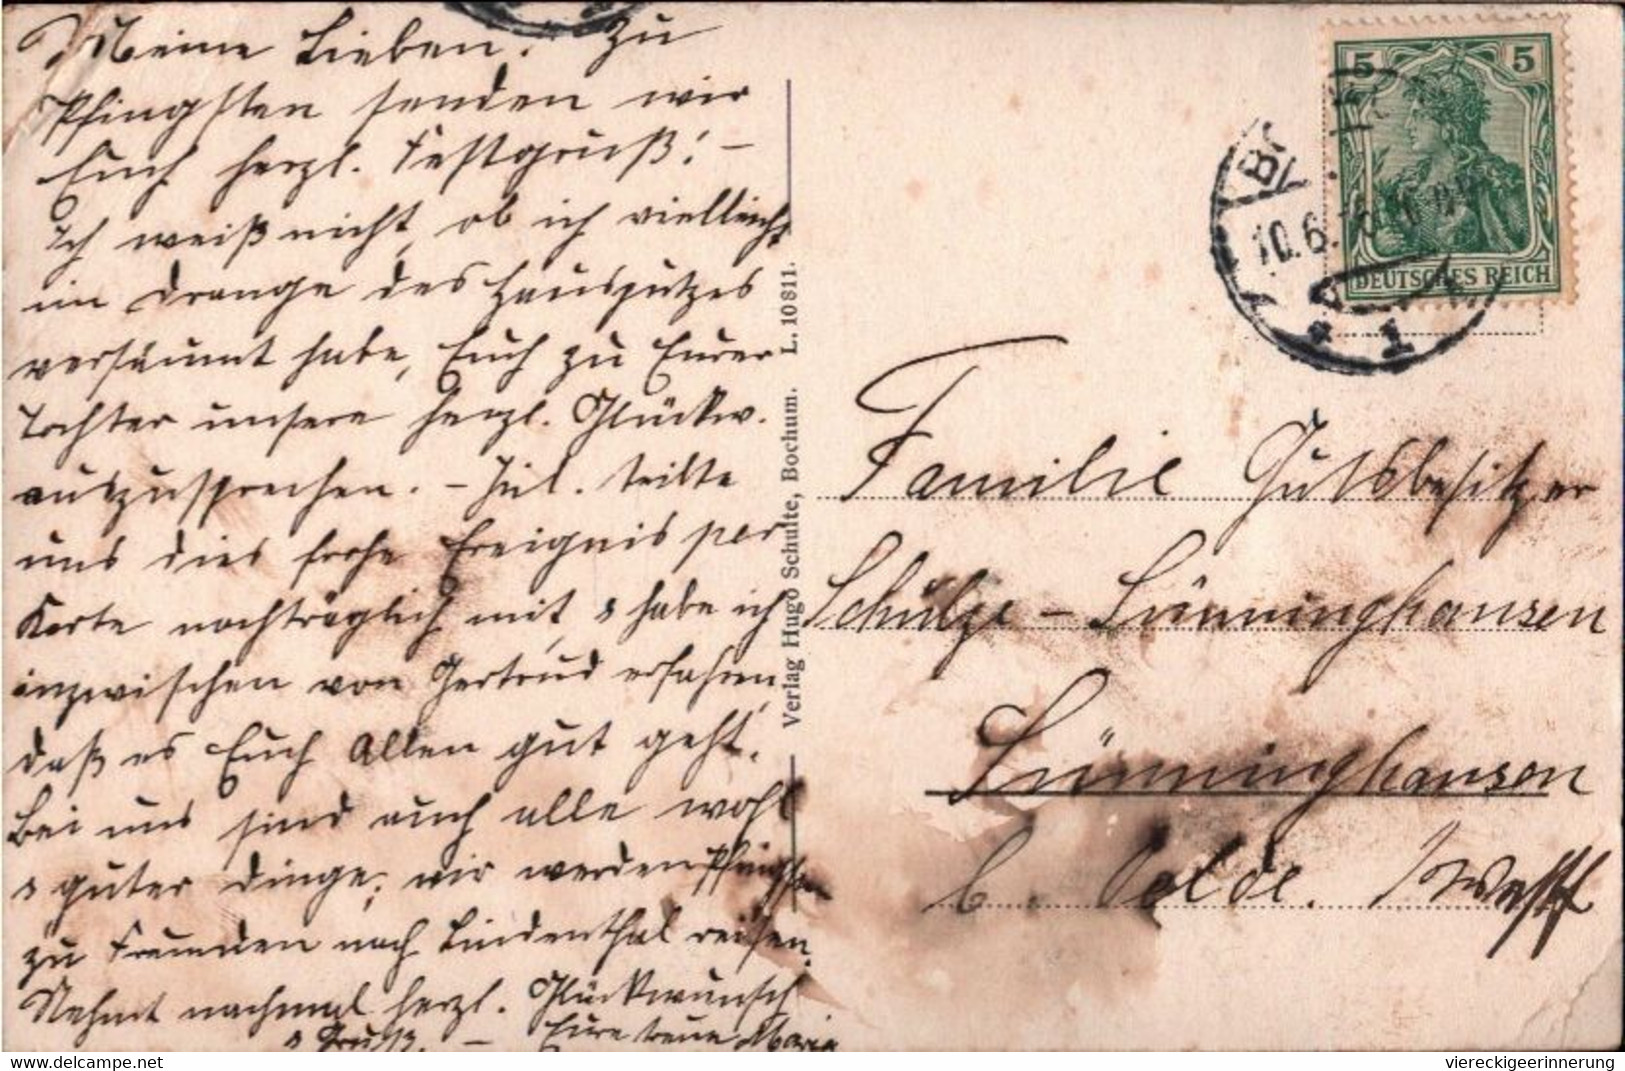 Meine Lieben! Zu
Pfingsten senden wir
Euch herzl. Festgruß! –
Ich weiß nicht, ob ich vielleicht
im Drange des Hausputzes
versäumt habe, Euch zu Eurer
Tochter unsere herzl. Glückw.
auszusprechen. – Jul. teilte
uns dies frohe Ereignis per
Karte nachträglich mit, u habe ich
inzwischen von Gertrud erfahren,
daß es Euch Allen gut geht.
Bei uns sind auch alle wohl
u guter Dinge; wir werden Pfingsten
zu Freunden nach Lindenthal reisen.
Nehmt nachmal herzl. Glückwunsch
u Gruß. – Eure treue Maria
Verlag Hugo Schulte, Bochum. L. 10811.
5 5
DEUTSCHES REICH
BO
10.6.
1
Familie Gutsbesitzer
Schulze-Lünninghausen
Lünninghausen
b. Oelde. i/Westf
viereckigeerinnerung